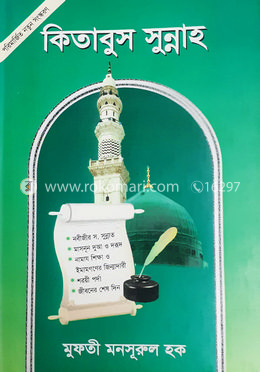 পরিমার্জিত নতুন সংস্করণ
কিতাবুস সুন্নাহ
www.rokomari.com
16297
নবীজীর স. সুন্নাত
মাসনূন দুআ ও দরূদ
নামায শিক্ষা ও
ইমামগণের জিম্মাদারী
শরয়ী পর্দা
জীবনের শেষ দিন
মুফতী মনসূরুল হক